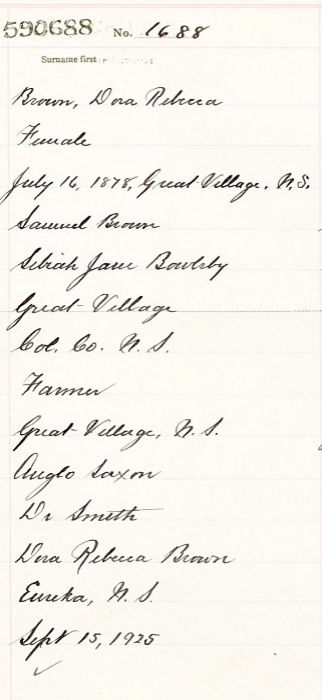 590688 No. 1688
Surname first
Brown, Dora Rebecca
Female
July 16, 1878, Great Village, N.S.
Samuel Brown
Sibiah Jane Bowlsby
Great Village
Col. Co. N. S.
Farmer
Great Village, N. S.
Anglo Saxon
Dr Smith
Dora Rebecca Brown
Eureka, N. S.
Sept 15, 1925